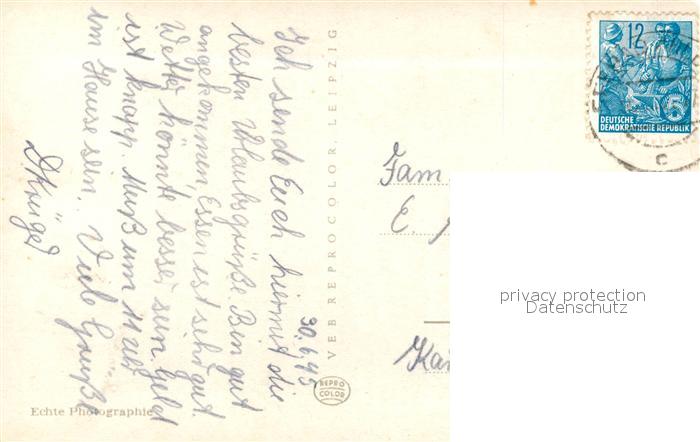 30. 6. 45
Ich sende Euch hiermit die
besten Urlaubsgrüße. Bin gut
angekommen, Essen ist sehr gut.
Wetter könnte besser sein. Geld
ist knapp. Muß um 11 Uhr
im Hause sein. Viele Grüße
VEB REPROCOLOR LEIPZIG
REPRO
COLOR
Echte Photographie
Fam
E.
12
5
DEUTSCHE
DEMOKRATISCHE REPUBLIK
privacy protection
Datenschutz